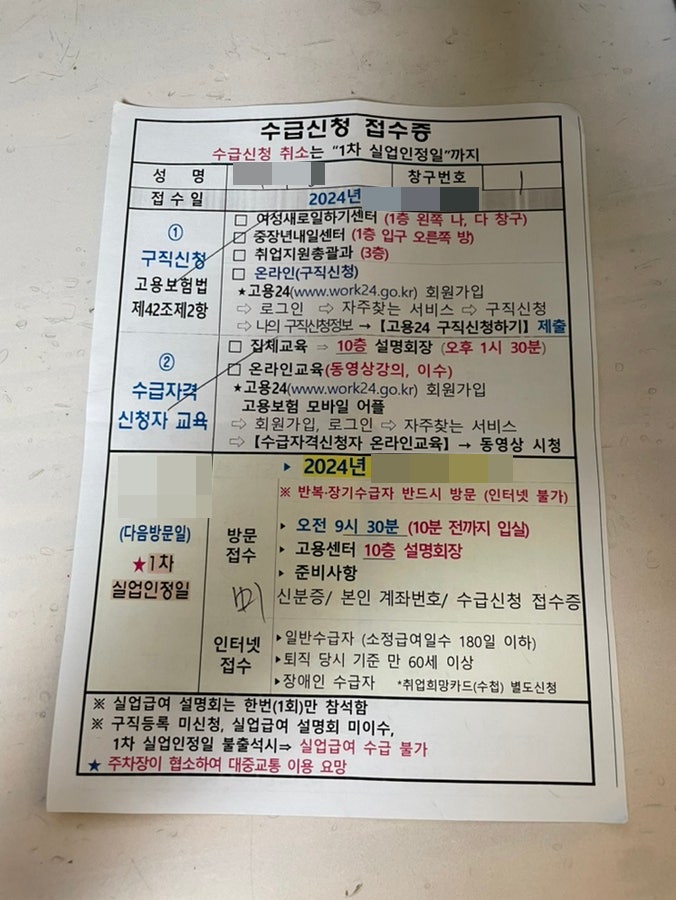 수급신청 접수증
수급신청 취소는 "1차 실업인정일"까지
성 명
창구번호
접 수 일
2024년
①
구직신청
고용보험법
제42조제2항
□ 여성새로일하기센터 (1층 왼쪽 나, 다 창구)
□ 중장년내일센터 (1층 입구 오른쪽 방)
□ 취업지원총괄과 (3층)
□ 온라인(구직신청)
★고용24(www.work24.go.kr) 회원가입
⇨ 로그인 ⇨ 자주찾는 서비스 ⇨ 구직신청
⇨ 나의 구직신청정보 → 【고용24 구직신청하기】 제출
②
수급자격
신청자 교육
□ 집체교육 ⇒ 10층 설명회장 (오후 1시 30분)
□ 온라인교육(동영상강의, 이수)
★고용24(www.work24.go.kr) 회원가입
고용보험 모바일 어플
⇨ 회원가입, 로그인 ⇨ 자주찾는 서비스
⇨ 【수급자격신청자 온라인교육】 → 동영상 시청
(다음방문일)
★1차
실업인정일
▶ 2024년
※ 반복·장기수급자 반드시 방문 (인터넷 불가)
방문
접수
▶ 오전 9시 30분 (10분 전까지 입실)
▶ 고용센터 10층 설명회장
▶ 준비사항
신분증/ 본인 계좌번호/ 수급신청 접수증
인터넷
접수
▶일반수급자 (소정급여일수 180일 이하)
▶퇴직 당시 기준 만 60세 이상
▶장애인 수급자 *취업희망카드(수첩) 별도신청
※ 실업급여 설명회는 한번(1회)만 참석함
※ 구직등록 미신청, 실업급여 설명회 미이수,
1차 실업인정일 불출석시⇒ 실업급여 수급 불가
★ 주차장이 협소하여 대중교통 이용 요망